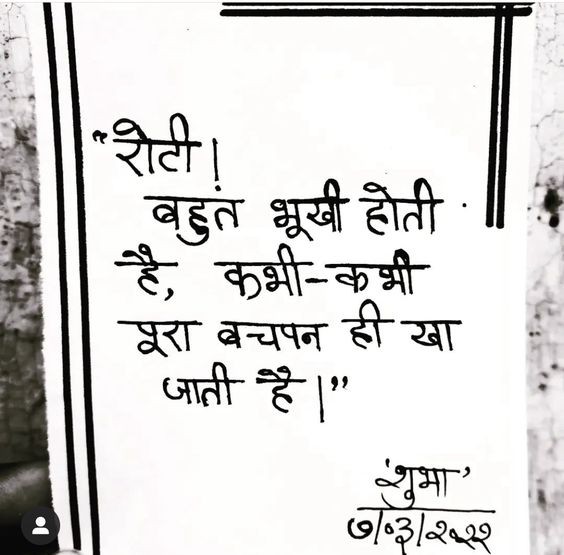 “रोटी।
बहुत भूखी होती
है, कभी-कभी
पूरा बचपन ही खा
जाती है।”
'शुभा'
७/०३/२०२२